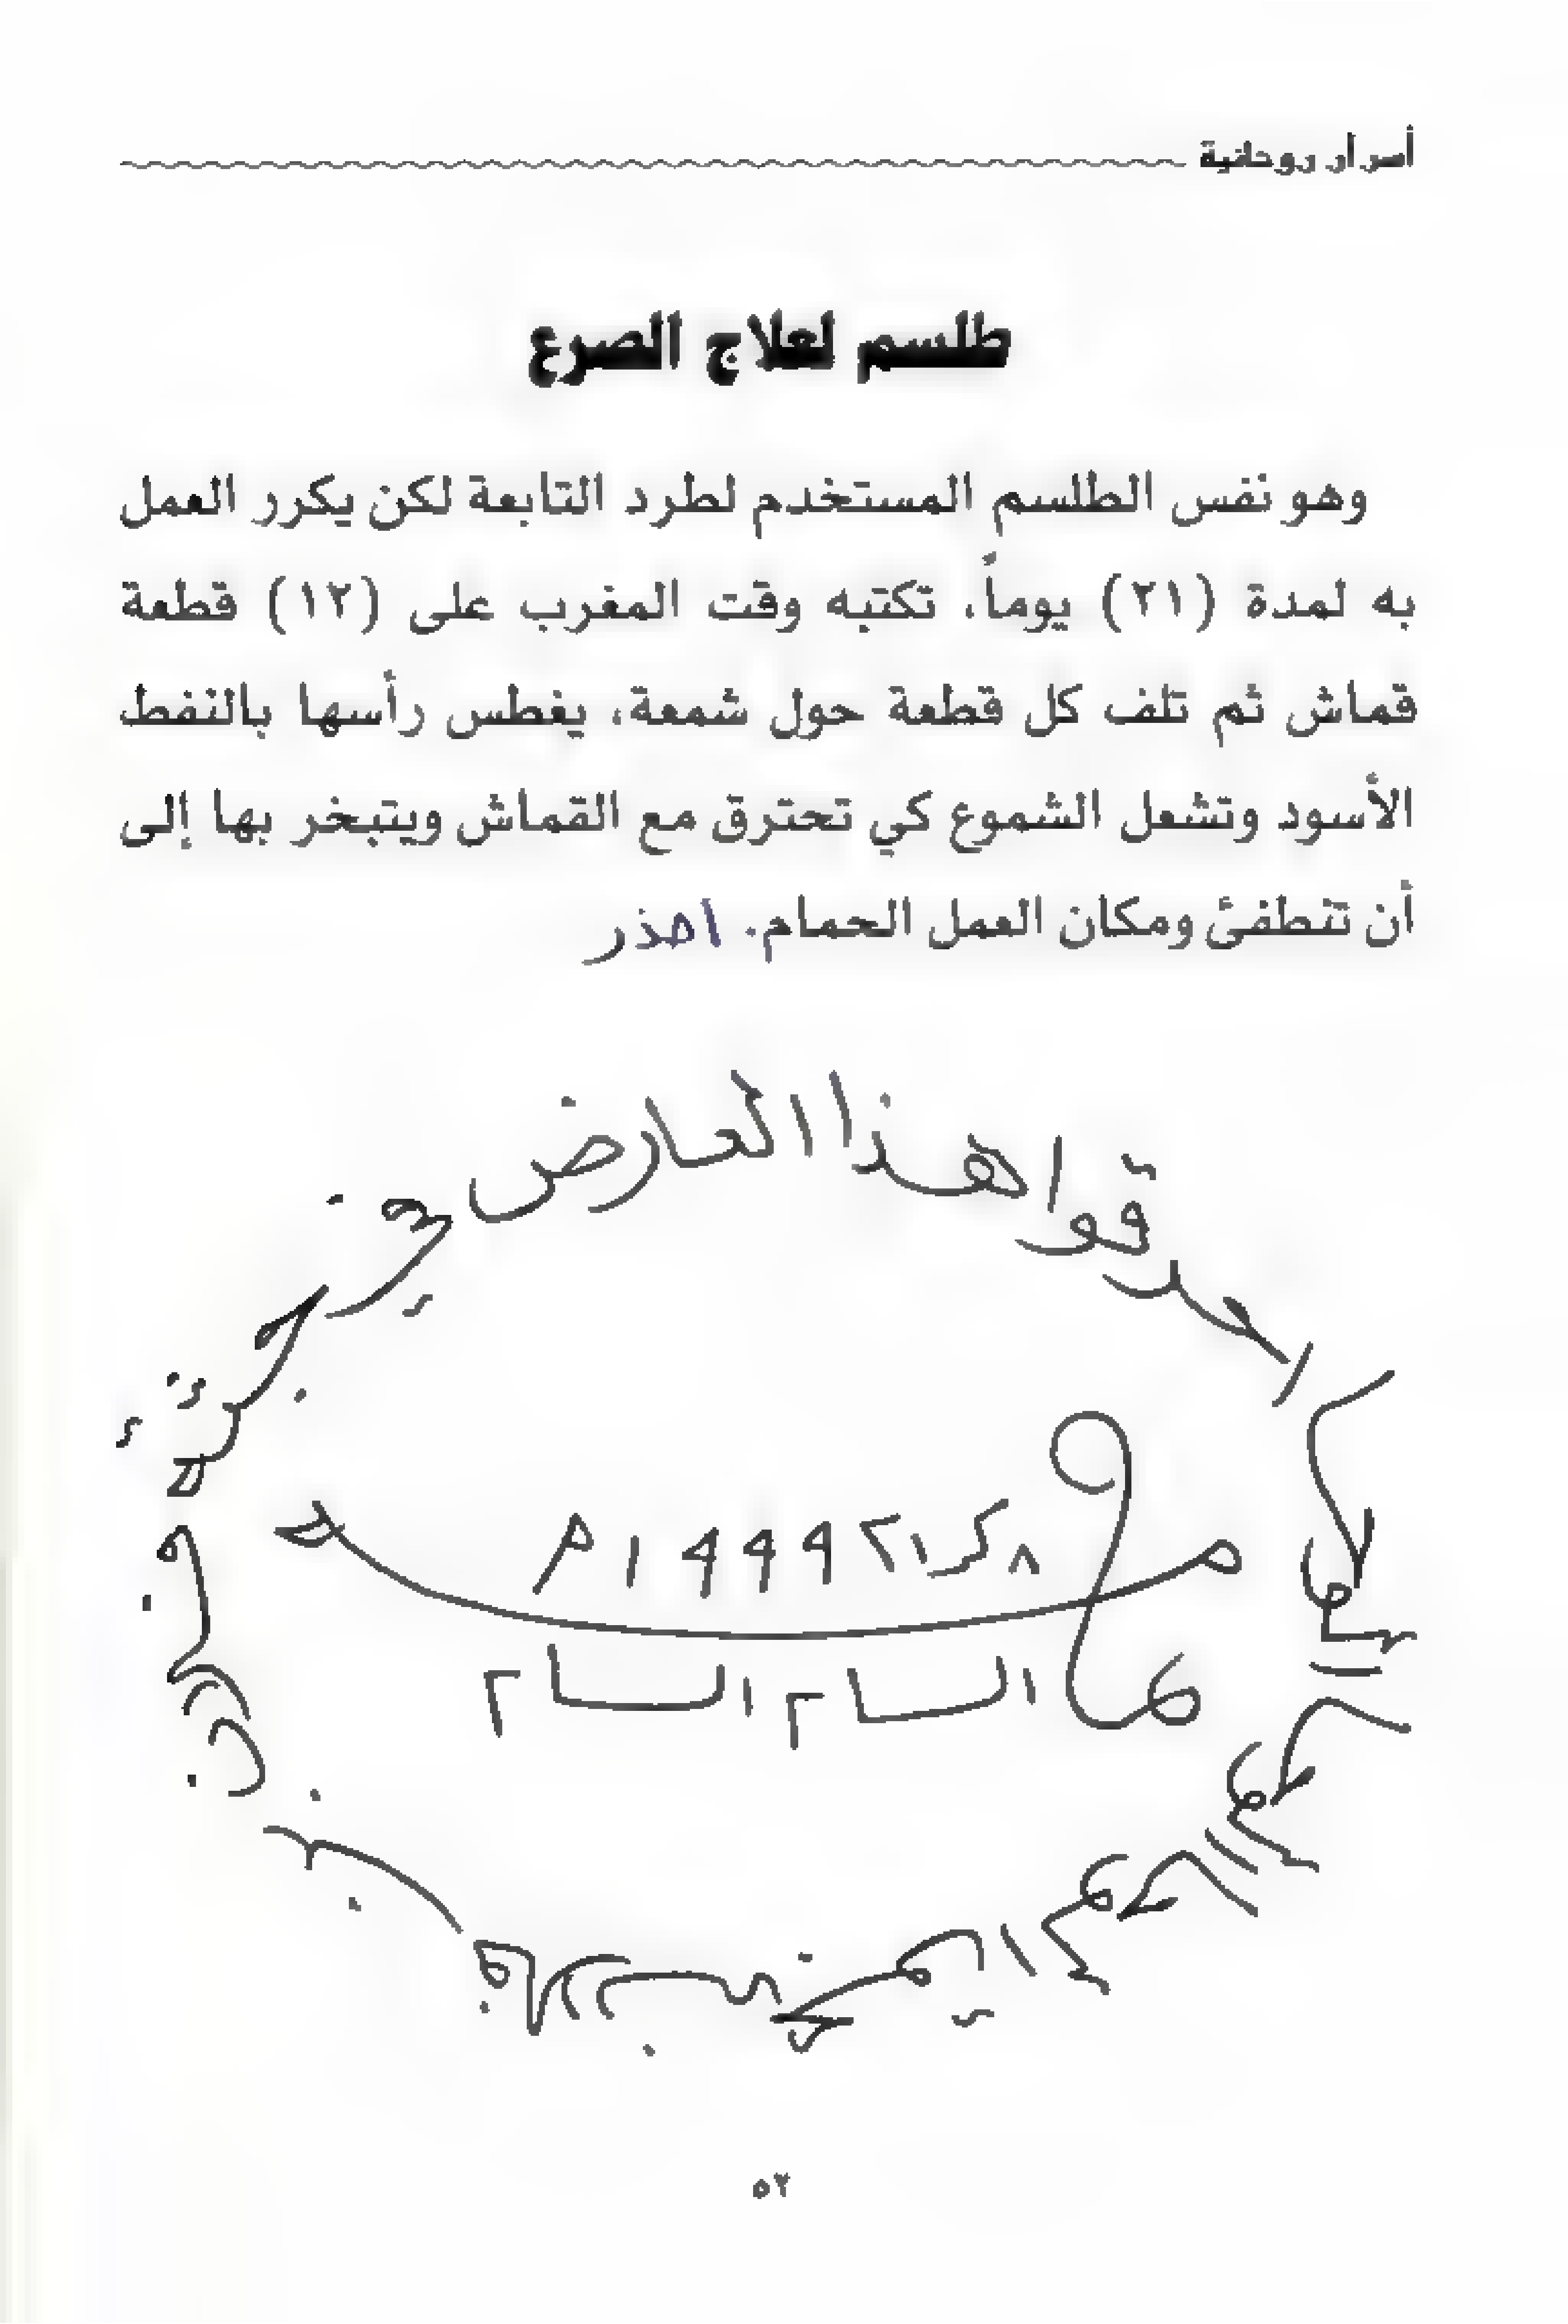 أسرار روحانية
طلسم لعلاج الصرع
وهو نفس الطلسم المستخدم لطرد التابعة لكن يكرر العمل
به لمدة (٢١) يوماً، تكتبه وقت المغرب على (١٢) قطعة
قماش ثم تلف كل قطعة حول شمعة، يغطس رأسها بالنفط
الأسود وتشعل الشموع كي تحترق مع القماش ويتبخر بها إلى
أن تنطفئ ومكان العمل الحمام. احذر
احرقوا هذا العارض
٥٢